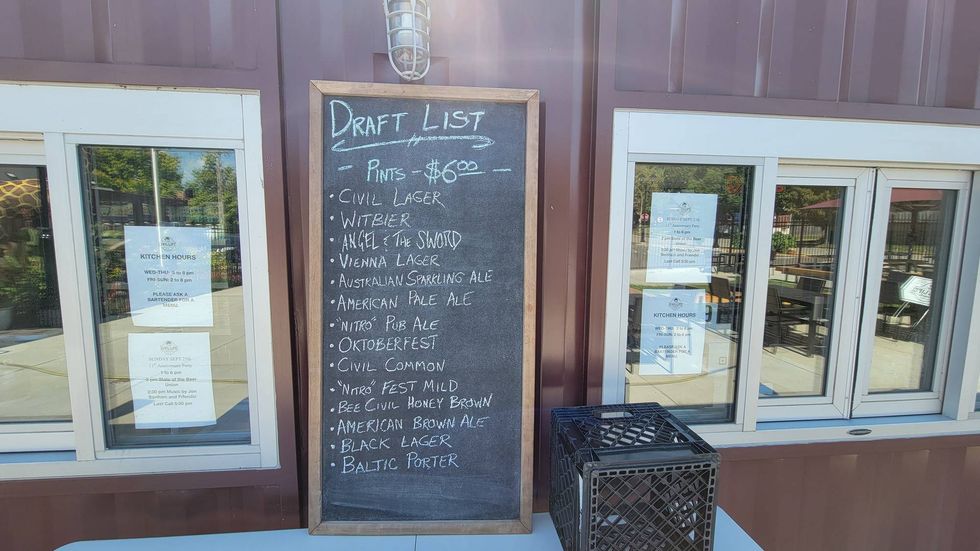 DRAFT LIST
- PINTS - $6.00 -
• CIVIL LAGER
• WITBIER
• ANGEL & THE SWORD
• VIENNA LAGER
• AUSTRALIAN SPARKLING ALE
• AMERICAN PALE ALE
• "NITRO" PUB ALE
• OKTOBERFEST
• CIVIL COMMON
• "NITRO" FEST MILD
• BEE CIVIL HONEY BROWN
• AMERICAN BROWN ALE
• BLACK LAGER
• BALTIC PORTER
KITCHEN HOURS
WED-THU: 5 to 8 pm
FRI-SUN: 2 to 8 pm
PLEASE ASK A
BARTENDER FOR A
MENU
SUNDAY SEPT 25th
11th Anniversary Party
1 to 6 pm
2 pm State of the Beer
Union
Last Call 5:30 pm
11th Anniversary Party
1 to 6 pm
2 pm State of the Beer
Union
KITCHEN HOURS
PLEASE ASK A
BARTENDER FOR A
MENU